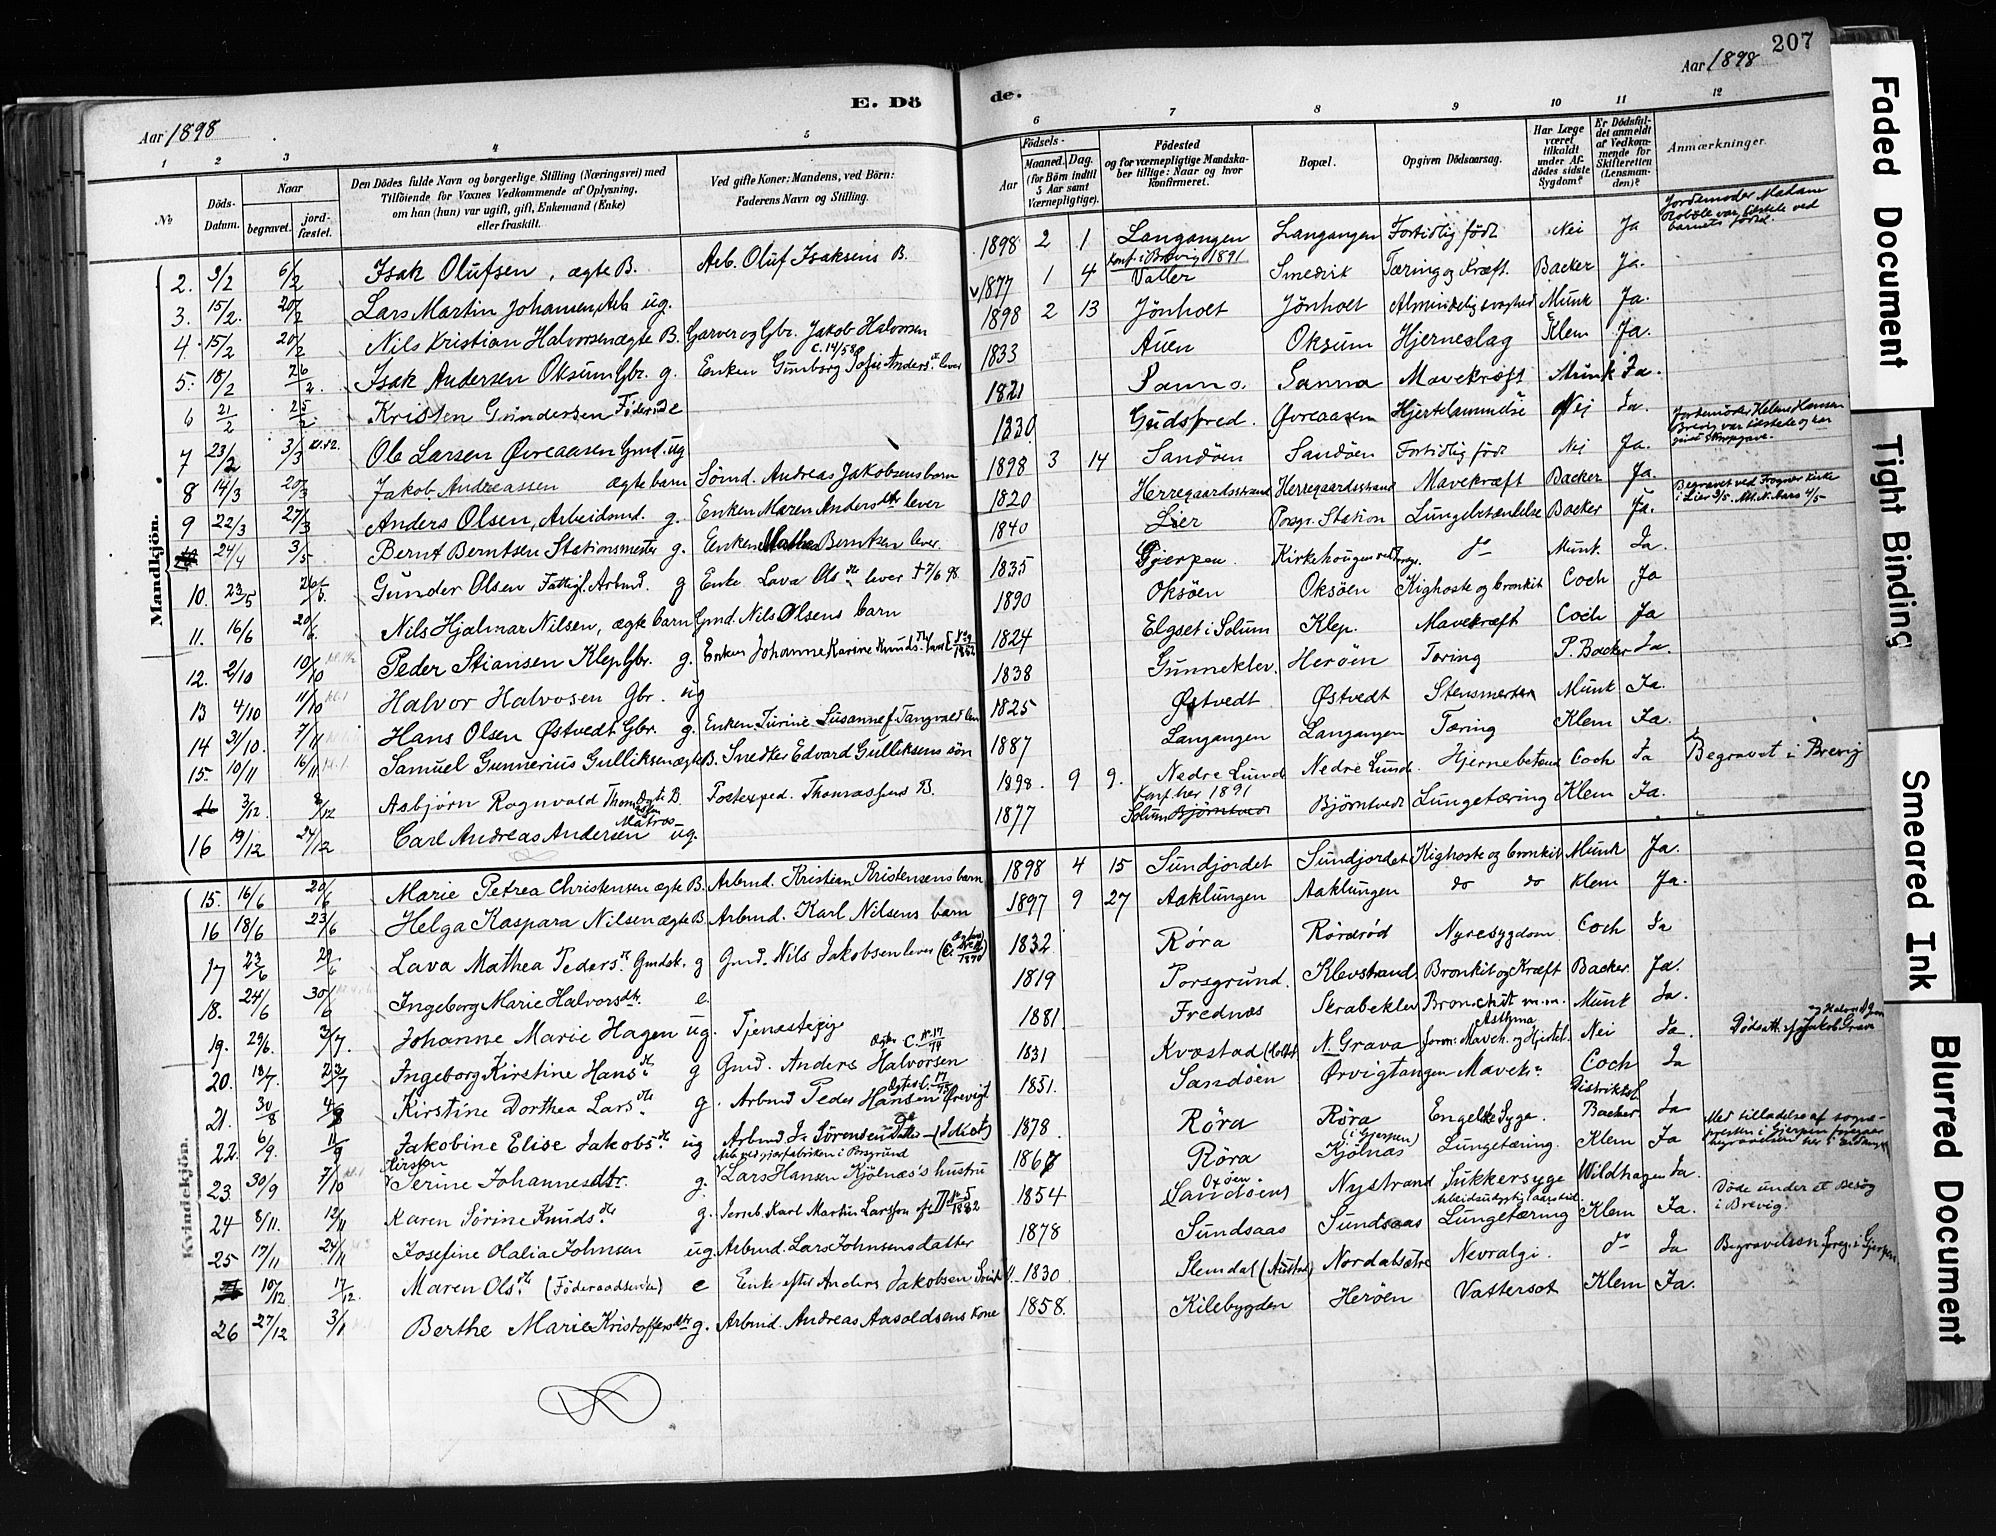 207
Aar 1898
E. Dö
de.
Aar 1898
1 2 3 4 5 6 7 8 9 10 11 12
No
Döds-Datum.
Naar
begravet.
jord-fæstet.
Den Dödes fulde Navn og borgerlige Stilling (Næringsvei) med
Tilföiende for Voxnes Vedkommende af Oplysning,
om han (hun) var ugift, gift, Enkemand (Enke)
eller fraskilt.
Ved gifte Koner: Mandens, ved Börn:
Faderens Navn og Stilling.
Födsels-
Aar
Maaned. Dag.
(for Börn indtil
5 Aar samt
Værnepligtige).
Födested
og for værnepligtige Mandska-
ber tillige: Naar og hvor
konfirmeret.
Bopæl.
Opgiven Dödsaarsag.
Har Læge
været
tilkaldt
under Af-
dödes sidste
Sygdom?
Er Dödsfal-
det anmeldt
af Vedkom-
mende for
Skifteretten
(Lensman-
den)?
Anmærkninger.
Mandkjön.
2. 3/2 6/2 Isak Olufsen, ægte B. Arb. Oluf Isaksens B. 1898 2 1 Langangen Langangen Fortidlig født Nei Ja Jordemoder Madame
var tilstede ved
barnets fødsel.
3. 15/2. 20/2 Lars Martin Johansen, Arb ug. 1877 1 4 Konf. i Brevig 1891 Valler Smedvik Tæring og Kræft. Backer Ja.
4. 15/2 20/2 Nils Kristian Halvorsen ægte B. Garver og Gbr. Jakob Halvorsen 1898 2 13 Jönholt Jönholt Almindelig svaghed Munk Ja.
5. 18/2 26/2. Isak Andersen Oksum Gbr. g. Enken Gunborg Sofie Andersdtr lever 1833 Auen Oksum Hjerneslag Klem Ja.
6 21/2 25/2. Kristen Gundersen 1821 Sanna Sanna Mavekræft Munk Ja.
7 23/2 3/3 Ole Larsen Øvreaasen Gmd. ug 1830. Gudsfred. Øvreaasen Nei Ja. Jordemoder Helene Hansen
Brevig var tilstede og har
8 14/3 20/3 Jakob Andreassen ægte barn Sømd. Andreas Jakobsens barn 1898 3 14 Sandöen Sandöen Fortidlig født Nei Ja.
9 22/3 27/3 Anders Olsen, Arbeidsmd. g. Enken Maren Andersdtr lever 1820 Herregaardsstrand Herregaardsstrand Mavekræft Backer Ja. Begravet ved Frogner Kirke
i Lier 3/5.
24/4 3/5. Bernt Berntsen Stationsmester g. Enken Mathea Berntsen lever. 1840 Lier Porsgr. Station Lungebetændelse Backer Ja.
10. 23/5 Gunder Olsen Fattigl. Arbmd. g Enke Lava Olsdtr lever † 7/6 98 1835 Gjerpen. Kirkehougen do Munk. Ja
11. 16/6 20/6. Nils Hjalmar Nilsen, ægte barn Gmd. Nils Olsens barn 1890 Oksøen Oksøen Kighoste og bronkit Coch Ja
12. 2/10 10/10 Peder Stiansen Klep Gbr. g. Enken Johanne Karine Knudsdtr 1824 Elgset i Solum Klep. Mavekræft Coch Ja
13 4/10 11/10 Halvor Halvosen Gbr. ug 1838 Gunneklev. Heröen Tæring P. Backer Ja.
14 31/10. 7/11 Hans Olsen Østvedt Gbr. g. Enken Turine Susanne f. Tangvald lev 1825 Østvedt Østvedt Stensmerter Munk Ja.
15. 10/11 16/11 Samuel Gunnerius Gulliksen ægte B. Snedker Edvard Gulliksens sön 1887 Langangen Langangen Tæring Klem Ja.
3/12. 8/12 Asbjørn Ragnvald ægte B. Postexped. B. 1898. 9 9. Nedre Lund Nedre Lund Coch Ja Begravet i Brevig
16 19/12 24/12 Carl Andreas Andersen Matros ug. 1877 Konf her 1891 Solum Bjørntvedt Bjørntvedt Lungetæring Klem Ja.
Kvindekjön.
15. 16/6 20/6 Marie Petrea Christensen ægte B. Arbmd. Kristian Kristensens barn 1898 4 15 Sundjordet Sundjordet Kighoste og bronkit Munk Ja.
16 18/6 23/6 Helga Kaspara Nilsen ægte B. Arbmd. Karl Nilsens barn 1897 9 27 Aaklungen Aaklungen do do Klem Ja.
17 23/6 29/6 Lava Mathea Pedersdtr Gmdsk. g Gmd. Nils Jakobsen lever 1832 Röra Rörerød Nyresygdom Coch Ja
18. 24/6 30/6 Ingeborg Marie Halvorsdtr. e. 1819 Porsgrund. Klevstrand Bronkit og Kræft Backer. Ja.
19. 29/6. 3/7. Johanne Marie Hagen ug. Tjenestepige 1881 Frednæs Skrabeklev Bronchit m.m. Munk Ja.
20. 18/7. 23/7 Ingeborg Kirstine Hansdtr g Gmd. Anders Halvorsen 1831 Kvæstad (Holt) N. Grava Asthma Nei Ja. Dødsatt. af Jakob Grava
21. 30/8 4/9 Kirstine Dorthea Larsdtr. g. Arbmd Peder Hansen Ørevigt 1851. Sandöen Ørvigtangen Coch Ja
22. 6/9. 11/9 Jakobine Elise Jakobsdtr ug Arbmd. Js Sörensens Datter (Idiot) 1878. Röra Röra Engelske Syge. Distriktsl. Backer Ja
23. 30/9 7/10 Kirsten Serine Johannesdtr. g. Lars Hansen Kjölnæs's hustru 1867 Röra Kjölnæs (i Gjerpen) Lungetæring. Klem Ja Med tilladelse af sogne-
presten i Gjerpen foregaar
begravelsen her i
24 8/11. 12/11 Karen Sörine Knudsdtr g. Jernb. Karl Martin Larssen 1854 Sandöens Nystrand Sukkersyge Wildhagen Ja. Døde under et besøg
i Brevig.
25 17/11 24/11 Josefine Olalia Johnsen ug. Arbmd. Lars Johnsens datter 1878 Sundsaas Sundsaas Lungetæring Klem Ja.
10/12 17/12. Maren Olsdtr (Föderaadsenke) e Enke efter Anders Jakobsen 1830 Slemdal Nordalsætre Nevralgi. do Ja Begravelsen foreg. i Gjerpen
26 27/12 3/1 Berthe Marie Kristoffersdtr g. Arbmd. Andreas Aasoldsens kone 1858. Kilebygden Heröen Vattersot Klem Ja.
Faded Document
Tight Binding
Smeared Ink
Blurred Document